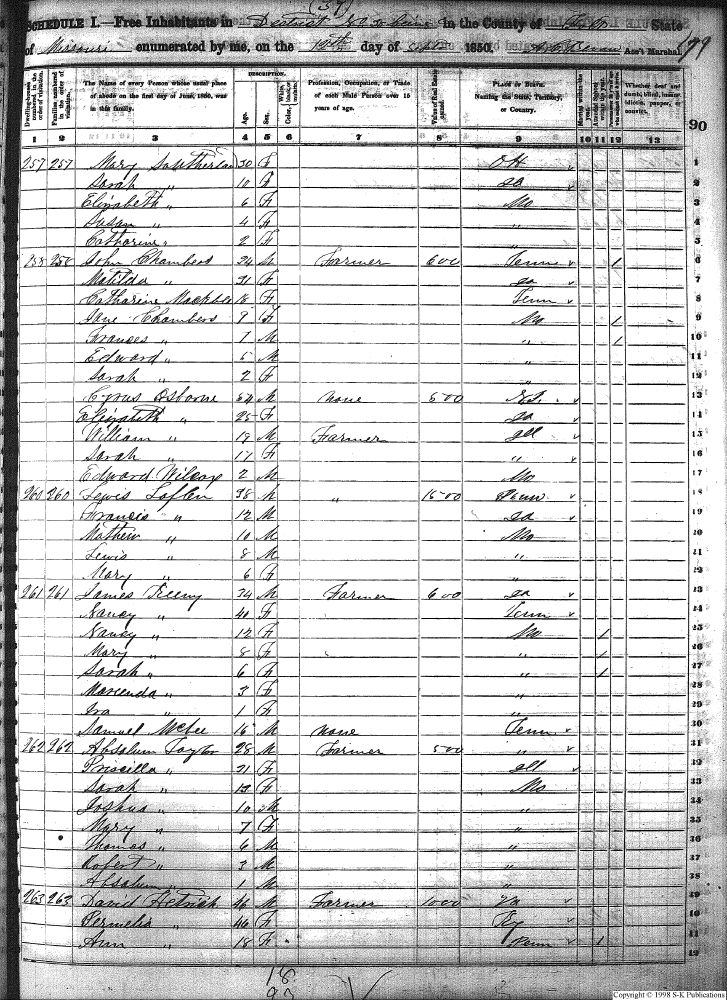 (37)
SCHEDULE I.—Free Inhabitants in District No in the County of State
of Missouri enumerated by me, on the 13th day of Sept 1850. Ass't Marshal. 79
Dwelling-houses numbered in the order of visitation. Families numbered in the order of visitation. The Name of every Person whose usual place of abode on the first day of June, 1850, was in this family. DESCRIPTION. Age. Sex. Color, White, black, or mulatto. Profession, Occupation, or Trade of each Male Person over 15 years of age. Value of Real Estate owned. PLACE OF BIRTH. Naming the State, Territory, or Country. Married within the year. Attended School within the year. Whether deaf and dumb, blind, insane, idiotic, pauper, or convict.
90
1 2 3 4 5 6 7 8 9 10 11 12 13
257 257 Mary 30 F OH 1
Sarah " 10 F 2
Elizabeth " 6 F Mo 3
Susan " 4 F " 4
Catharine " 2 F " 5
258 258 John Chambers 34 M Farmer 600 Tenn 1 6
Matilda " 31 F 7
Catharine 18 F Tenn 8
Jane Chambers 9 F Mo 1 9
Frances " 7 M " 1 10
Edward " 5 M " 11
Sarah " 2 F " 12
Cyrus Osborne 54 M none 500 13
Elizabeth " 25 F 14
William " 19 M Farmer Ill 15
Sarah " 17 F " 16
Edward Wilcox 2 M Mo 17
260 260 Lewis Loflen 38 M " 1500 Tenn 18
Francis " 12 M 19
Mathew " 10 M Mo 20
Lewis " 8 M " 21
Mary " 6 F " 22
261 261 James 34 M Farmer 600 23
Nancy " 40 F Tenn 24
Nancy " 12 F Mo 1 25
Mary " 8 F " 1 26
Sarah " 6 F " 1 27
" 3 F " 28
Ira " 1 F " 29
Samuel McGee 16 M none Tenn 30
262 262 Absolum Taylor 28 M Farmer 500 " 31
Priscilla " 31 F Ill 32
Sarah " 13 F Mo 33
Joshua " 10 M " 34
Mary " 7 F " 35
Thomas " 6 M " 36
Robert " 3 M " 37
Absolum " 1 M " 38
263 263 David 46 M Farmer 1000 Va 39
" 46 F Ky 40
Ann " 18 F Tenn 1 41
42
18
Copyright © 1998 S-K Publications